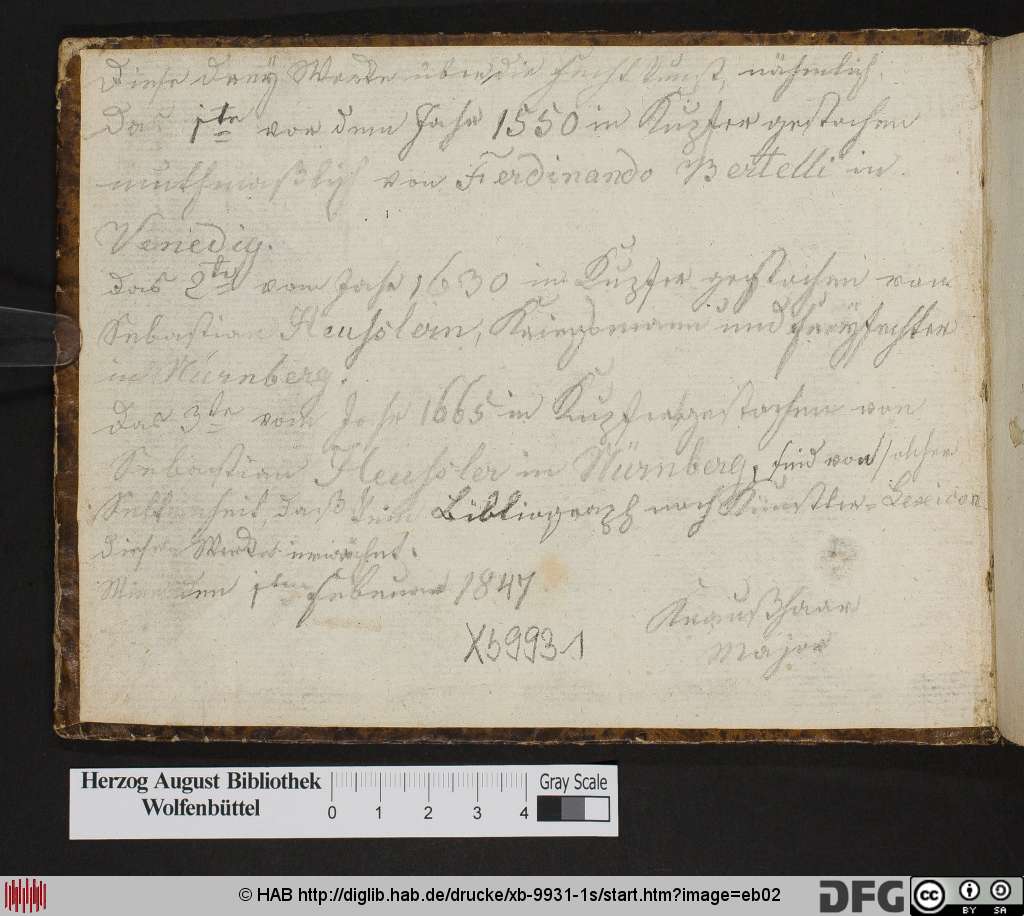 Diese drey Werke über die Fechtkunst, nähmlich
Das 1te vor dem Jahr 1550 in Kupfer gestochen
muthmaßlich von Ferdinando Bertelli in
Venedig.
das 2te vom Jahr 1630 in Kupfer gestochen von
Sebastian Heußlern, Kriegsmann und Freyfechter
in Nürnberg.
das 3te vom Jahr 1665 in Kupfer gestochen von
Sebastian Heussler in Nürnberg, sind von solcher
Seltenheit, daß kein Bibliograph noch Künstler-Lexicon
dieser Werke erwähnt.
1ten Februar 1847
Kraußhaar
Major
Xb 9931
Herzog August Bibliothek
Wolfenbüttel
0 1 2 3 4
Gray Scale
© HAB http://diglib.hab.de/drucke/xb-9931-1s/start.htm?image=eb02
DFG
cc BY SA